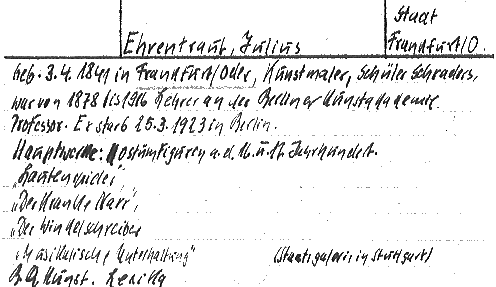 Stadt
Ehrentraut, Julius
Frankfurt/O.
Geb. 3.4. 1841 in Frankfurt/Oder, Kunstmaler, Schüler Schraders,
war von 1878 bis 1916 Lehrer an der Berliner Kunstakademie
Professor. Er starb 25.3.1923 in Berlin.
Hauptwerke: Kostümfiguren a. d. 16. u. 17. Jahrhundert.
„Lautenspieler",
„Der Kranke Narr",
„Der Winkelschreiber
„Musikalische Unterhaltung" (Staatsgalerie in Stuttgart)
Kunst.